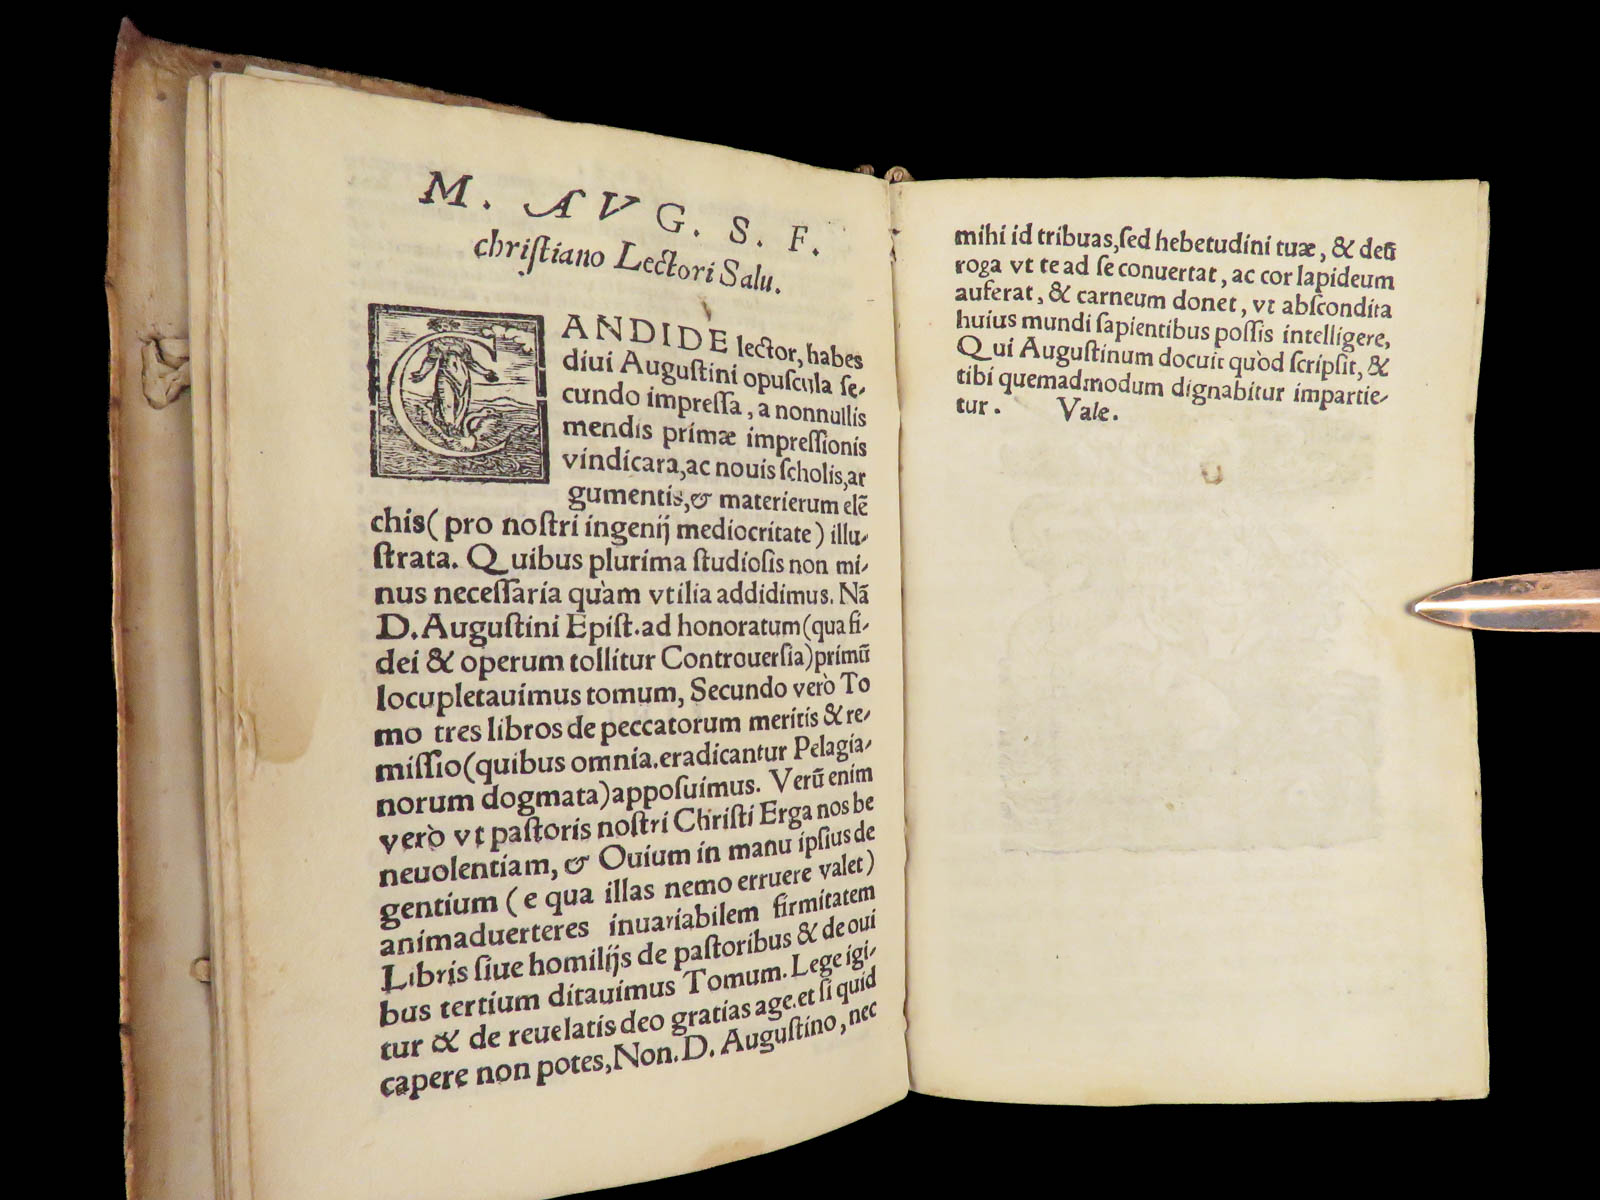 M. AVG. S. F.
chriſtiano Lectori Salu.
CANDIDE lector, habes
diui Auguſtini opuſcula ſe-
cundo impreſſa, a nonnullis
mendis primæ impreſſionis
vindicara, ac nouis ſcholis, ar
gumentis, & materierum elē
chis (pro noſtri ingenij mediocritate) illu-
ſtrata. Quibus plurima ſtudioſis non mi-
nus neceſſaria quàm vtilia addidimus. Nā
D. Auguſtini Epiſt. ad honoratum (qua fi-
dei & operum tollitur Controuerſia) primū
locupletauimus tomum, Secundo verò To
mo tres libros de peccatorum meritis & re-
miſſio (quibus omnia. eradicantur Pelagia-
norum dogmata) appoſuimus. Verū enim
verò vt paſtoris noſtri Chriſti Erga nos be
neuolentiam, & Ouium in manu ipſius de
gentium (e qua illas nemo erruere valet)
animaduerteres inuariabilem firmitatem
Libris ſiue homilijs de paſtoribus & de oui
bus tertium ditauimus Tomum. Lege igi-
tur & de reuelatis deo gratias age. et ſi quid
capere non potes, Non. D. Auguſtino, nec
mihi id tribuas, ſed hebetudini tuæ, & deū
roga vt te ad ſe conuertat, ac cor lapideum
auferat, & carneum donet, vt abſcondita
huius mundi ſapientibus poſſis intelligere,
Qui Auguſtinum docuit quòd ſcripſit, &
tibi quemadmodum dignabitur impartie-
tur. Vale.